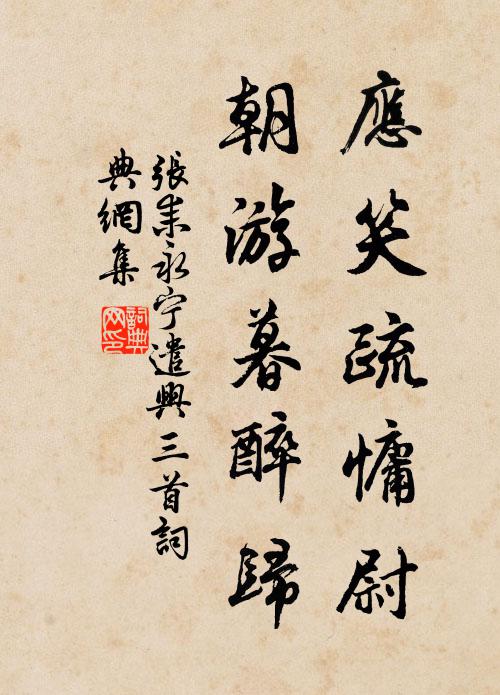 應笑疏慵尉
朝游暮醉歸
張耒永宁遣興三首詞
典網集
詞典
网印